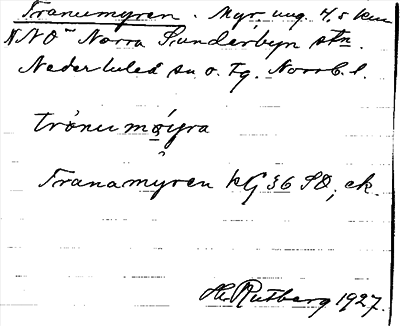 Tranumyren. Myr ung. 4,5 km
NNO Norra Sunderbyn stn.
Nederluleå sn o. tg. Norrb. l.
trånumøyra
Tranamyren kG 36 SO, ek.
H. Rutberg 1927.